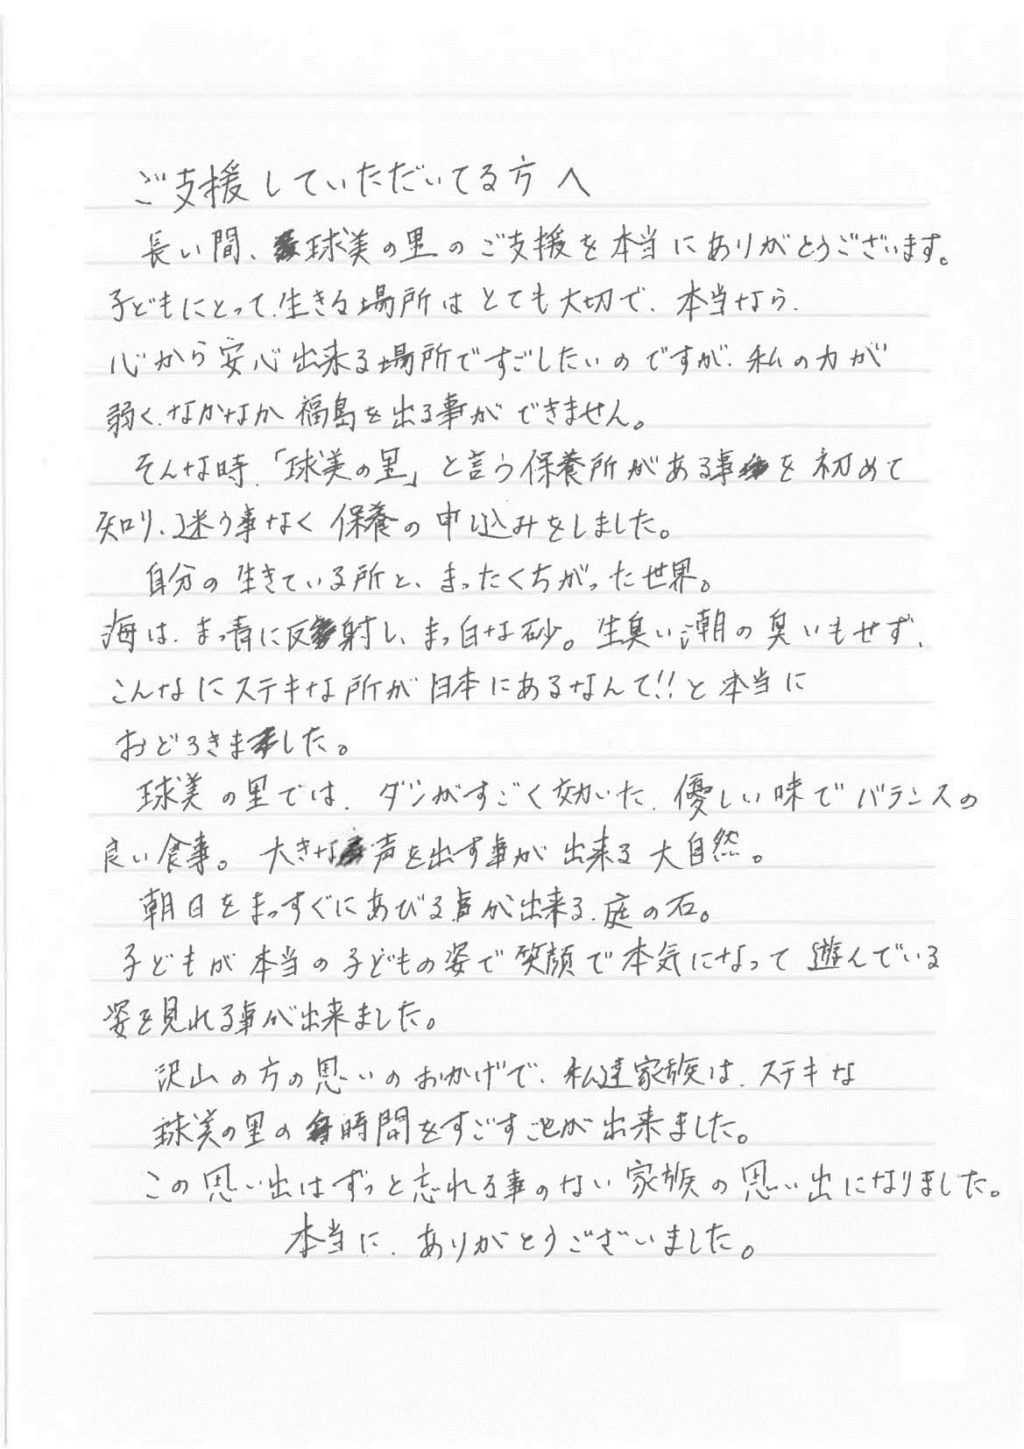 ご支援していただいてる方へ
長い間、球美の里のご支援を本当にありがとうございます。
子どもにとって、生きる場所はとても大切で、本当なら、
心から安心出来る場所ですごしたいのですが、私の力が
弱く、なかなか福島を出る事ができません。
そんな時、「球美の里」と言う保養所がある事を初めて
知り、迷う事なく保養の申し込みをしました。
自分の生きている所と、まったくちがった世界。
海は、まっ青に反射し、まっ白な砂。生臭い潮の臭いもせず、
こんなにステキな所が日本にあるなんて!!と本当に
おどろきました。
球美の里では、ダシがすごく効いた、優しい味でバランスの
良い食事。大きな声を出す事が出来る大自然。
朝日をまっすぐにあびる事が出来る、庭の石。
子どもが本当の子どもの姿で笑顔で本気になって遊んでいる
姿を見れる事が出来ました。
沢山の方の思いのおかげで、私達家族は、ステキな
球美の里の時間をすごすことが出来ました。
この思い出はずっと忘れる事のない家族の思い出になりました。
本当に、ありがとうございました。